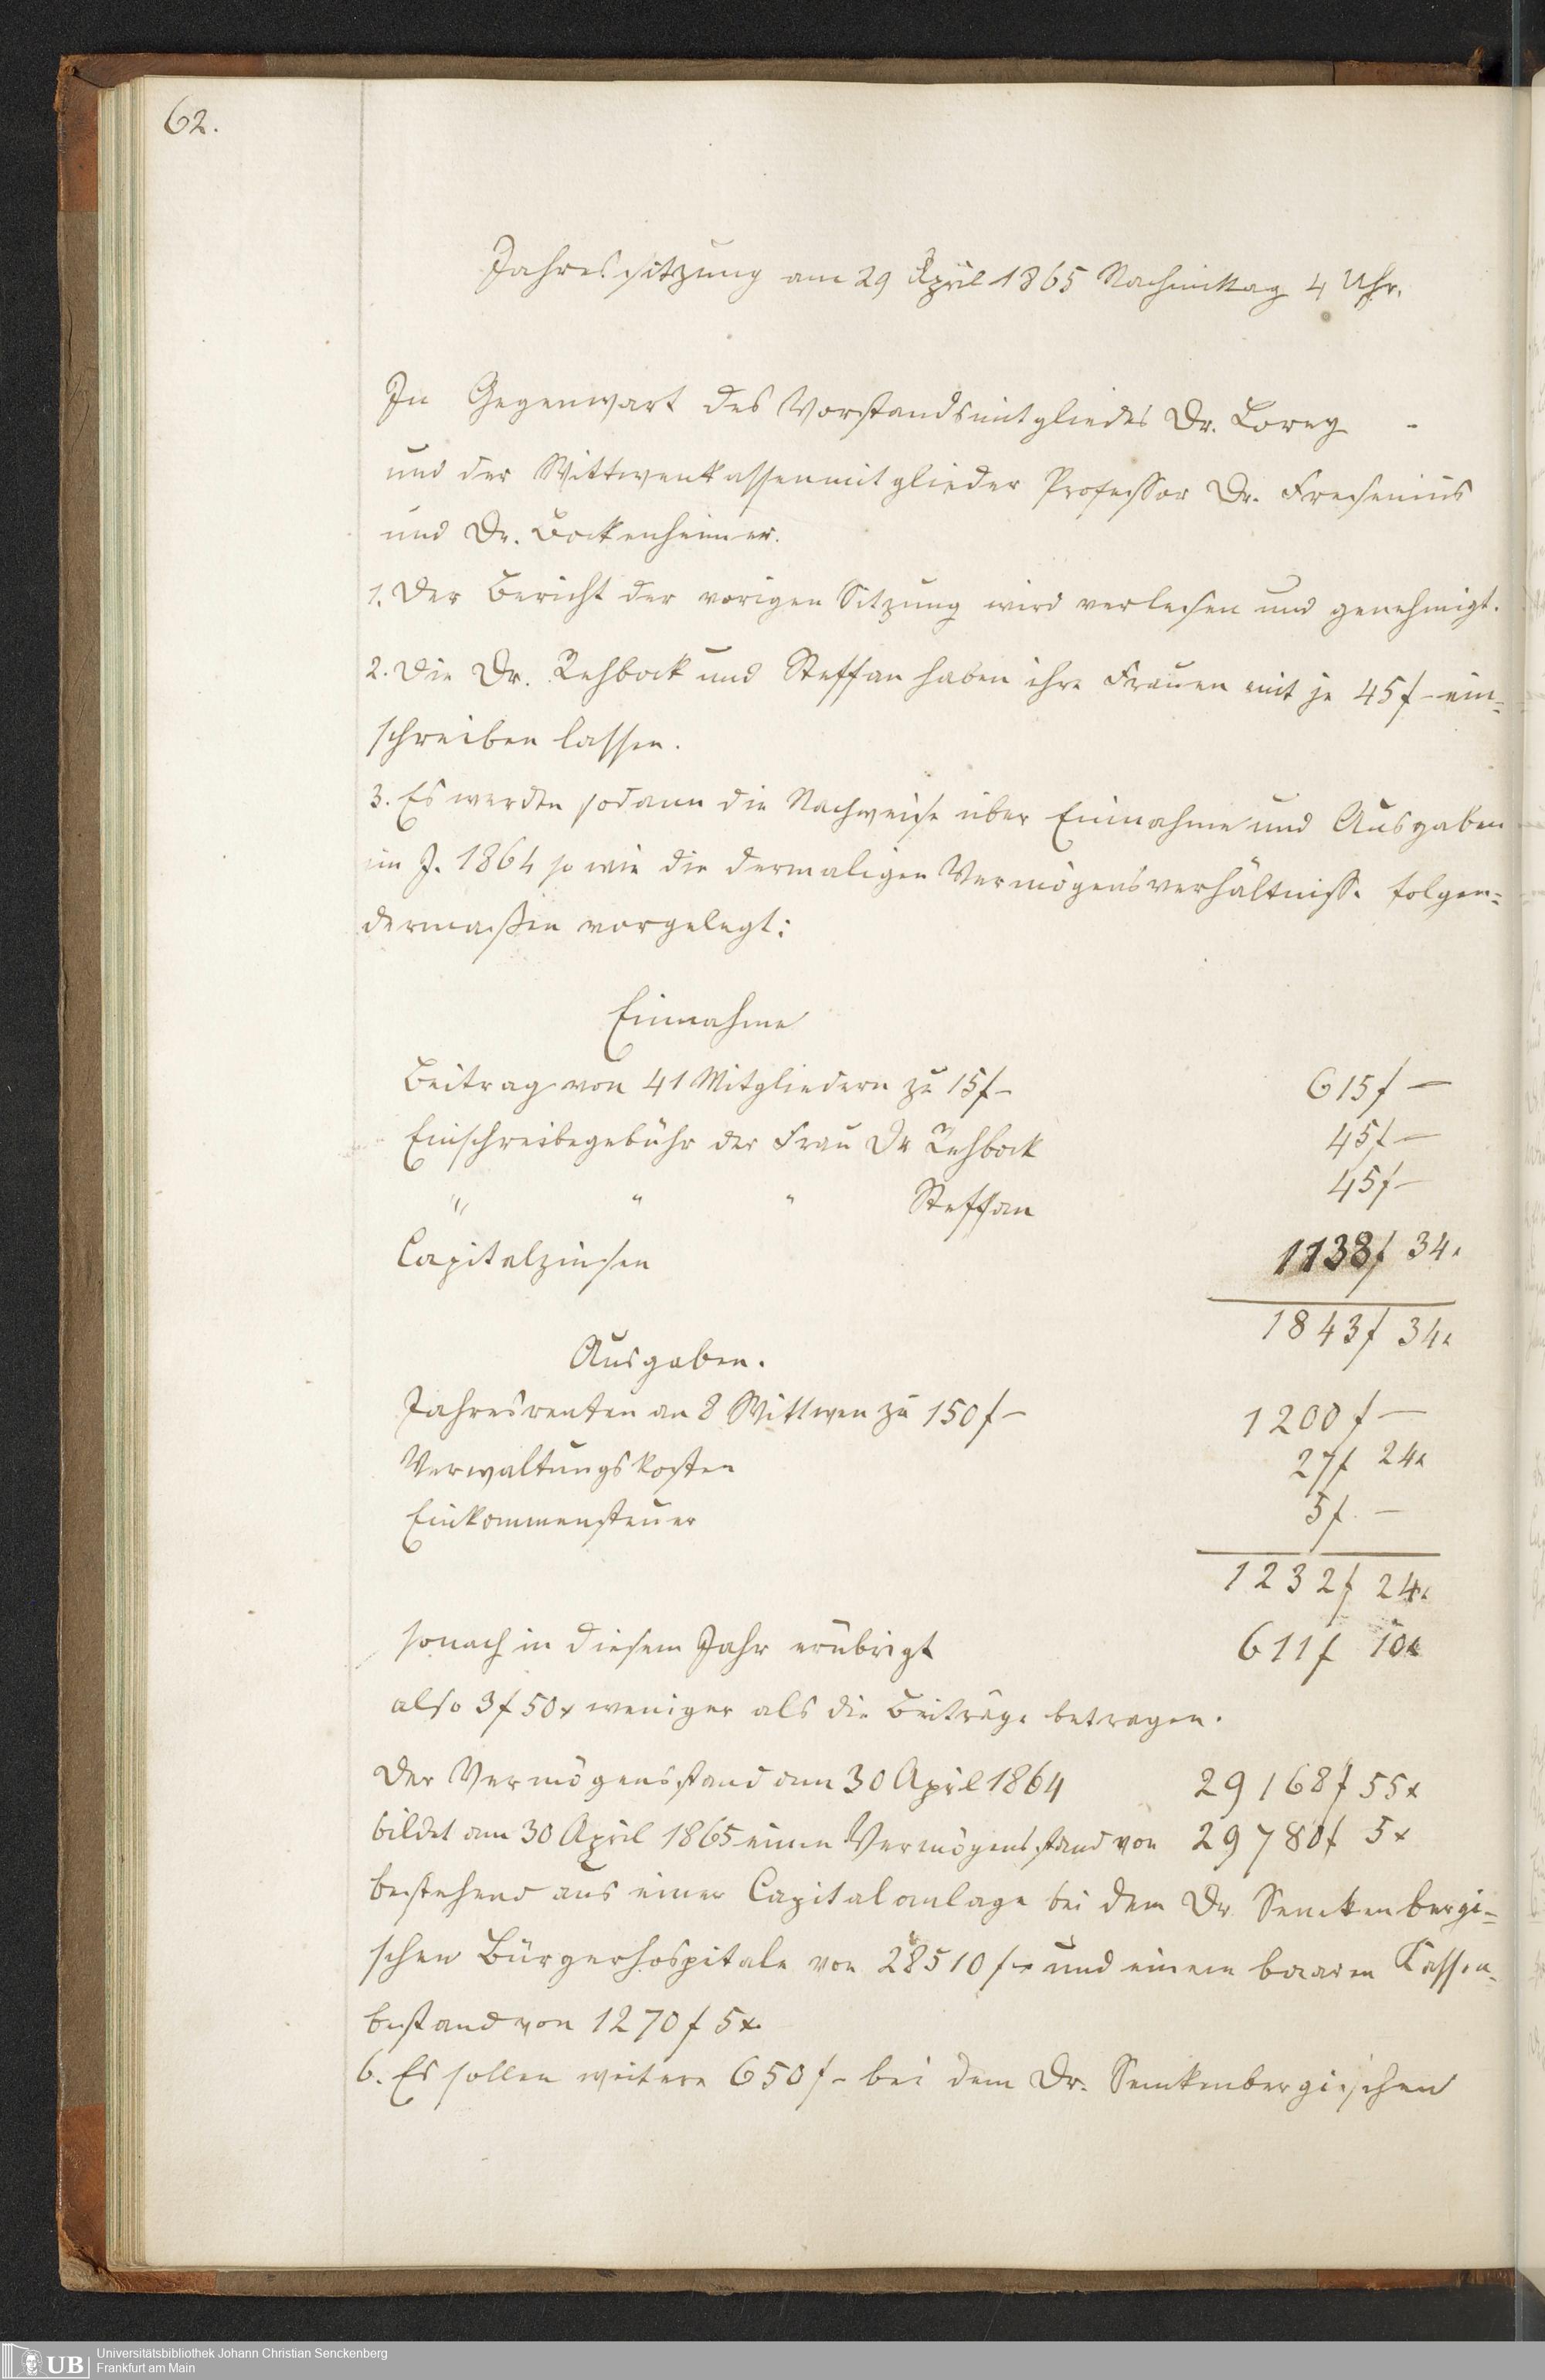 62.
Jahressitzung am 29 April 1865 Nachmittag 4 Uhr.
In Gegenwart des Vorstandsmitgliedes Dr. Lorey -
und der Wittwenkassenmitglieder Professor Dr. Fresenius
und Dr. Bockenheimer.
1. Der Bericht der vorigen Sitzung wird verlesen und genehmigt.
2. Die Dr. Rehbock und Steffan haben ihre Frauen mit je 45f – ein=
schreiben lassen.
3. Es werden sodann die Nachweise über Einnahme und Ausgaben
im J. 1864 so wie die dermaligen Vermögensverhältnisse folgen=
dermaßen vorgelegt:
Einnahme
Beitrag von 41 Mitgliedern zu 15f – 615f –
Einschreibegebühr der Frau Dr Rehbock 45f –
" " " Steffan 45f –
Capitalzinsen 1138f 34x
1843f 34x
Ausgaben.
Jahresrenten an 8 Wittwen zu 150f – 1200f –
Verwaltungskosten 27f 24x
Einkommensteuer 5f –
1232f 24x
sonach in diesem Jahr erübrigt 611f 10x
also 3f 50x weniger als die Beiträge betragen.
Der Vermögensstand am 30 April 1864 29168f 55x
bildet am 30 April 1865 einen Vermögensstand von 29780f 5x
bestehend aus einer Capitalanlage bei dem Dr Senckenbergi=
schen Bürgerhospitale von 28510f – und einem baaren Kassen=
bestand von 1270f 5x
6. Es sollen weitere 650f – bei dem Dr. Senckenbergischen
UB Universitätsbibliothek Johann Christian Senckenberg
Frankfurt am Main